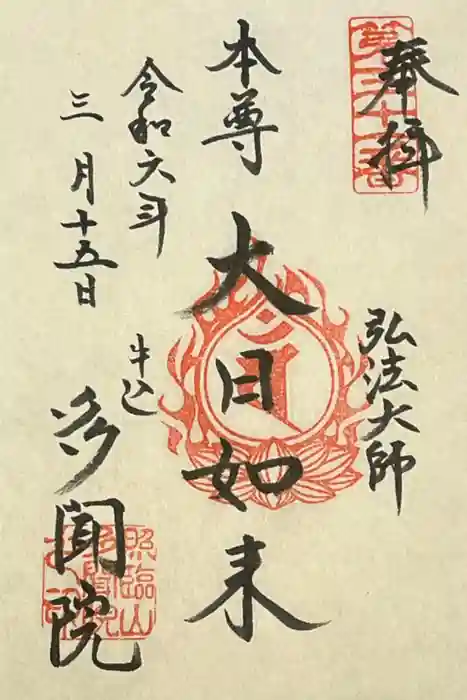 奉拝
弘法大師
本尊
大日如来
令和六年
三月十五日
牛込
多聞院
照臨山
多聞院